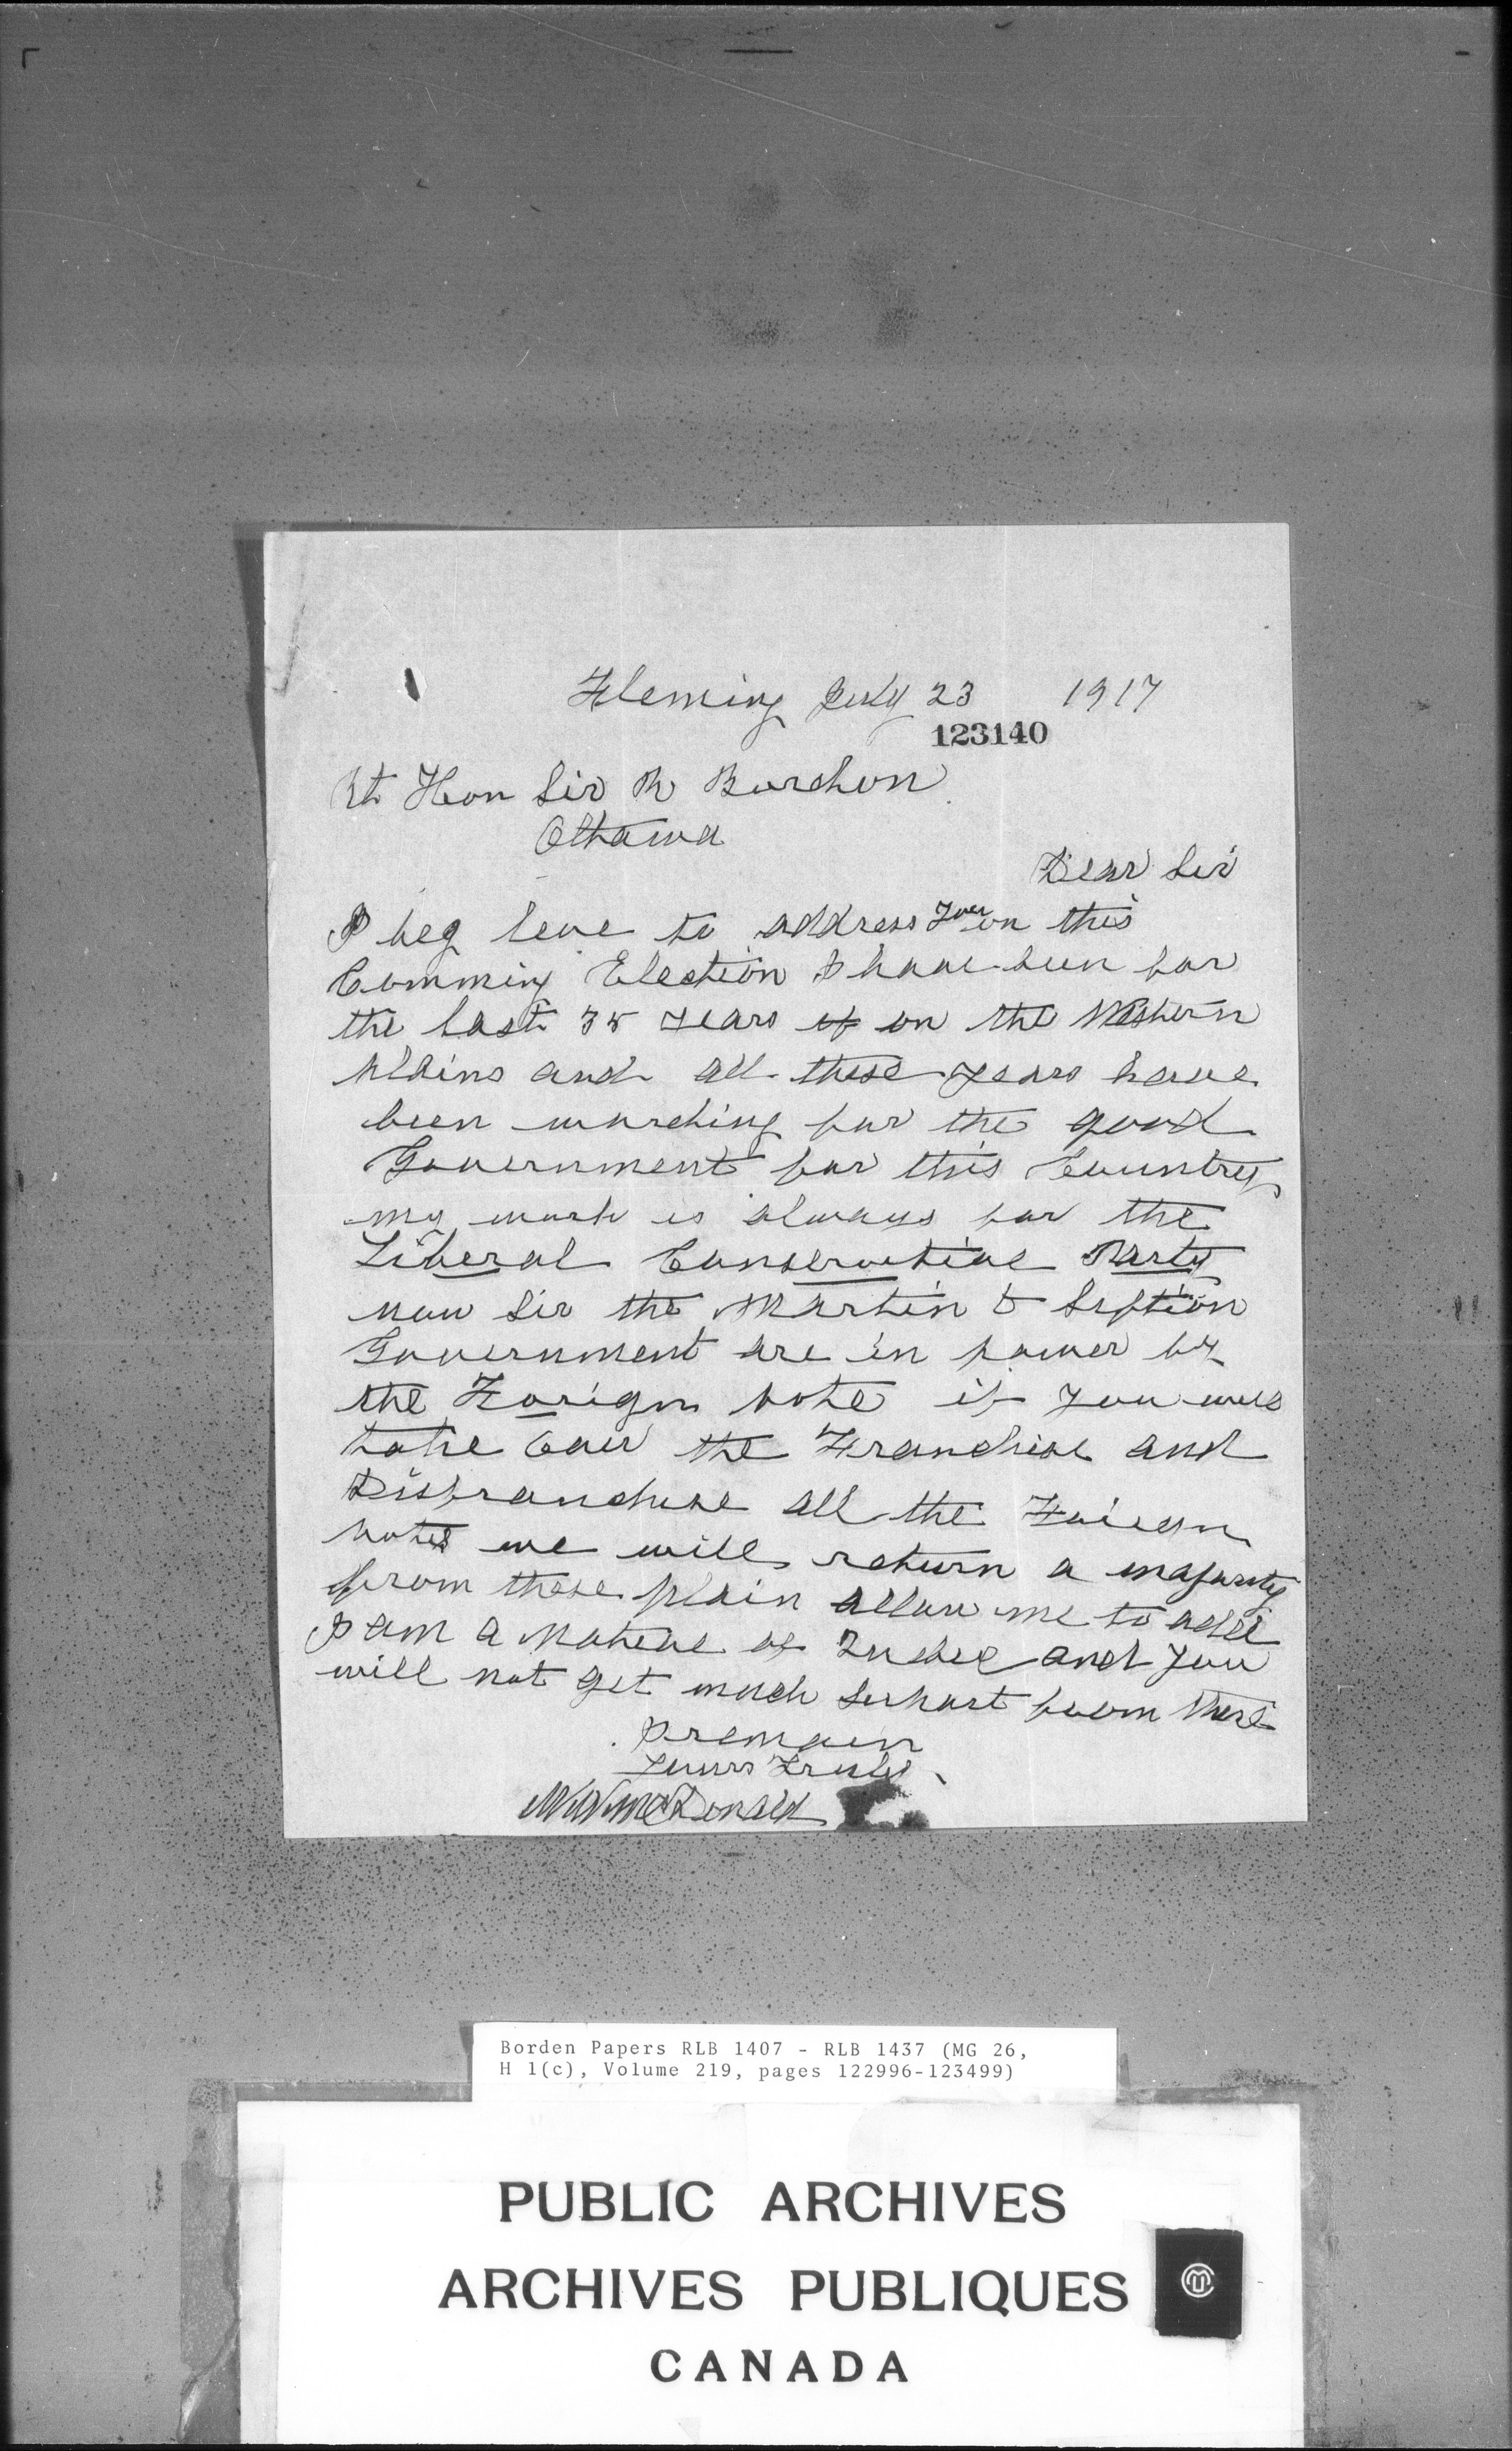 Fleming July 23 1917
123140
Rt Hon Sir R Borden
Ottawa
Dear Sir
I beg leve to address you on this
Comming Election I have been for
the last 35 years of on the Western
plains and all these years have
been working for the good
Government for this Country
my work is always for the
Liberal Conservative Party
now Sir the Martin &
Government are in power by
the Forign vote if you will
take over the Franchise and
Disfranchise all the Foiegn
votes we will return a majority
from these plain allow me to add
I am a native of Qubec and you
will not get much suport from there
I remain
Yours Truly
McDonald
Borden Papers RLB 1407 - RLB 1437 (MG 26,
H 1(c), Volume 219, pages 122996-123499)
PUBLIC ARCHIVES
ARCHIVES PUBLIQUES
CANADA